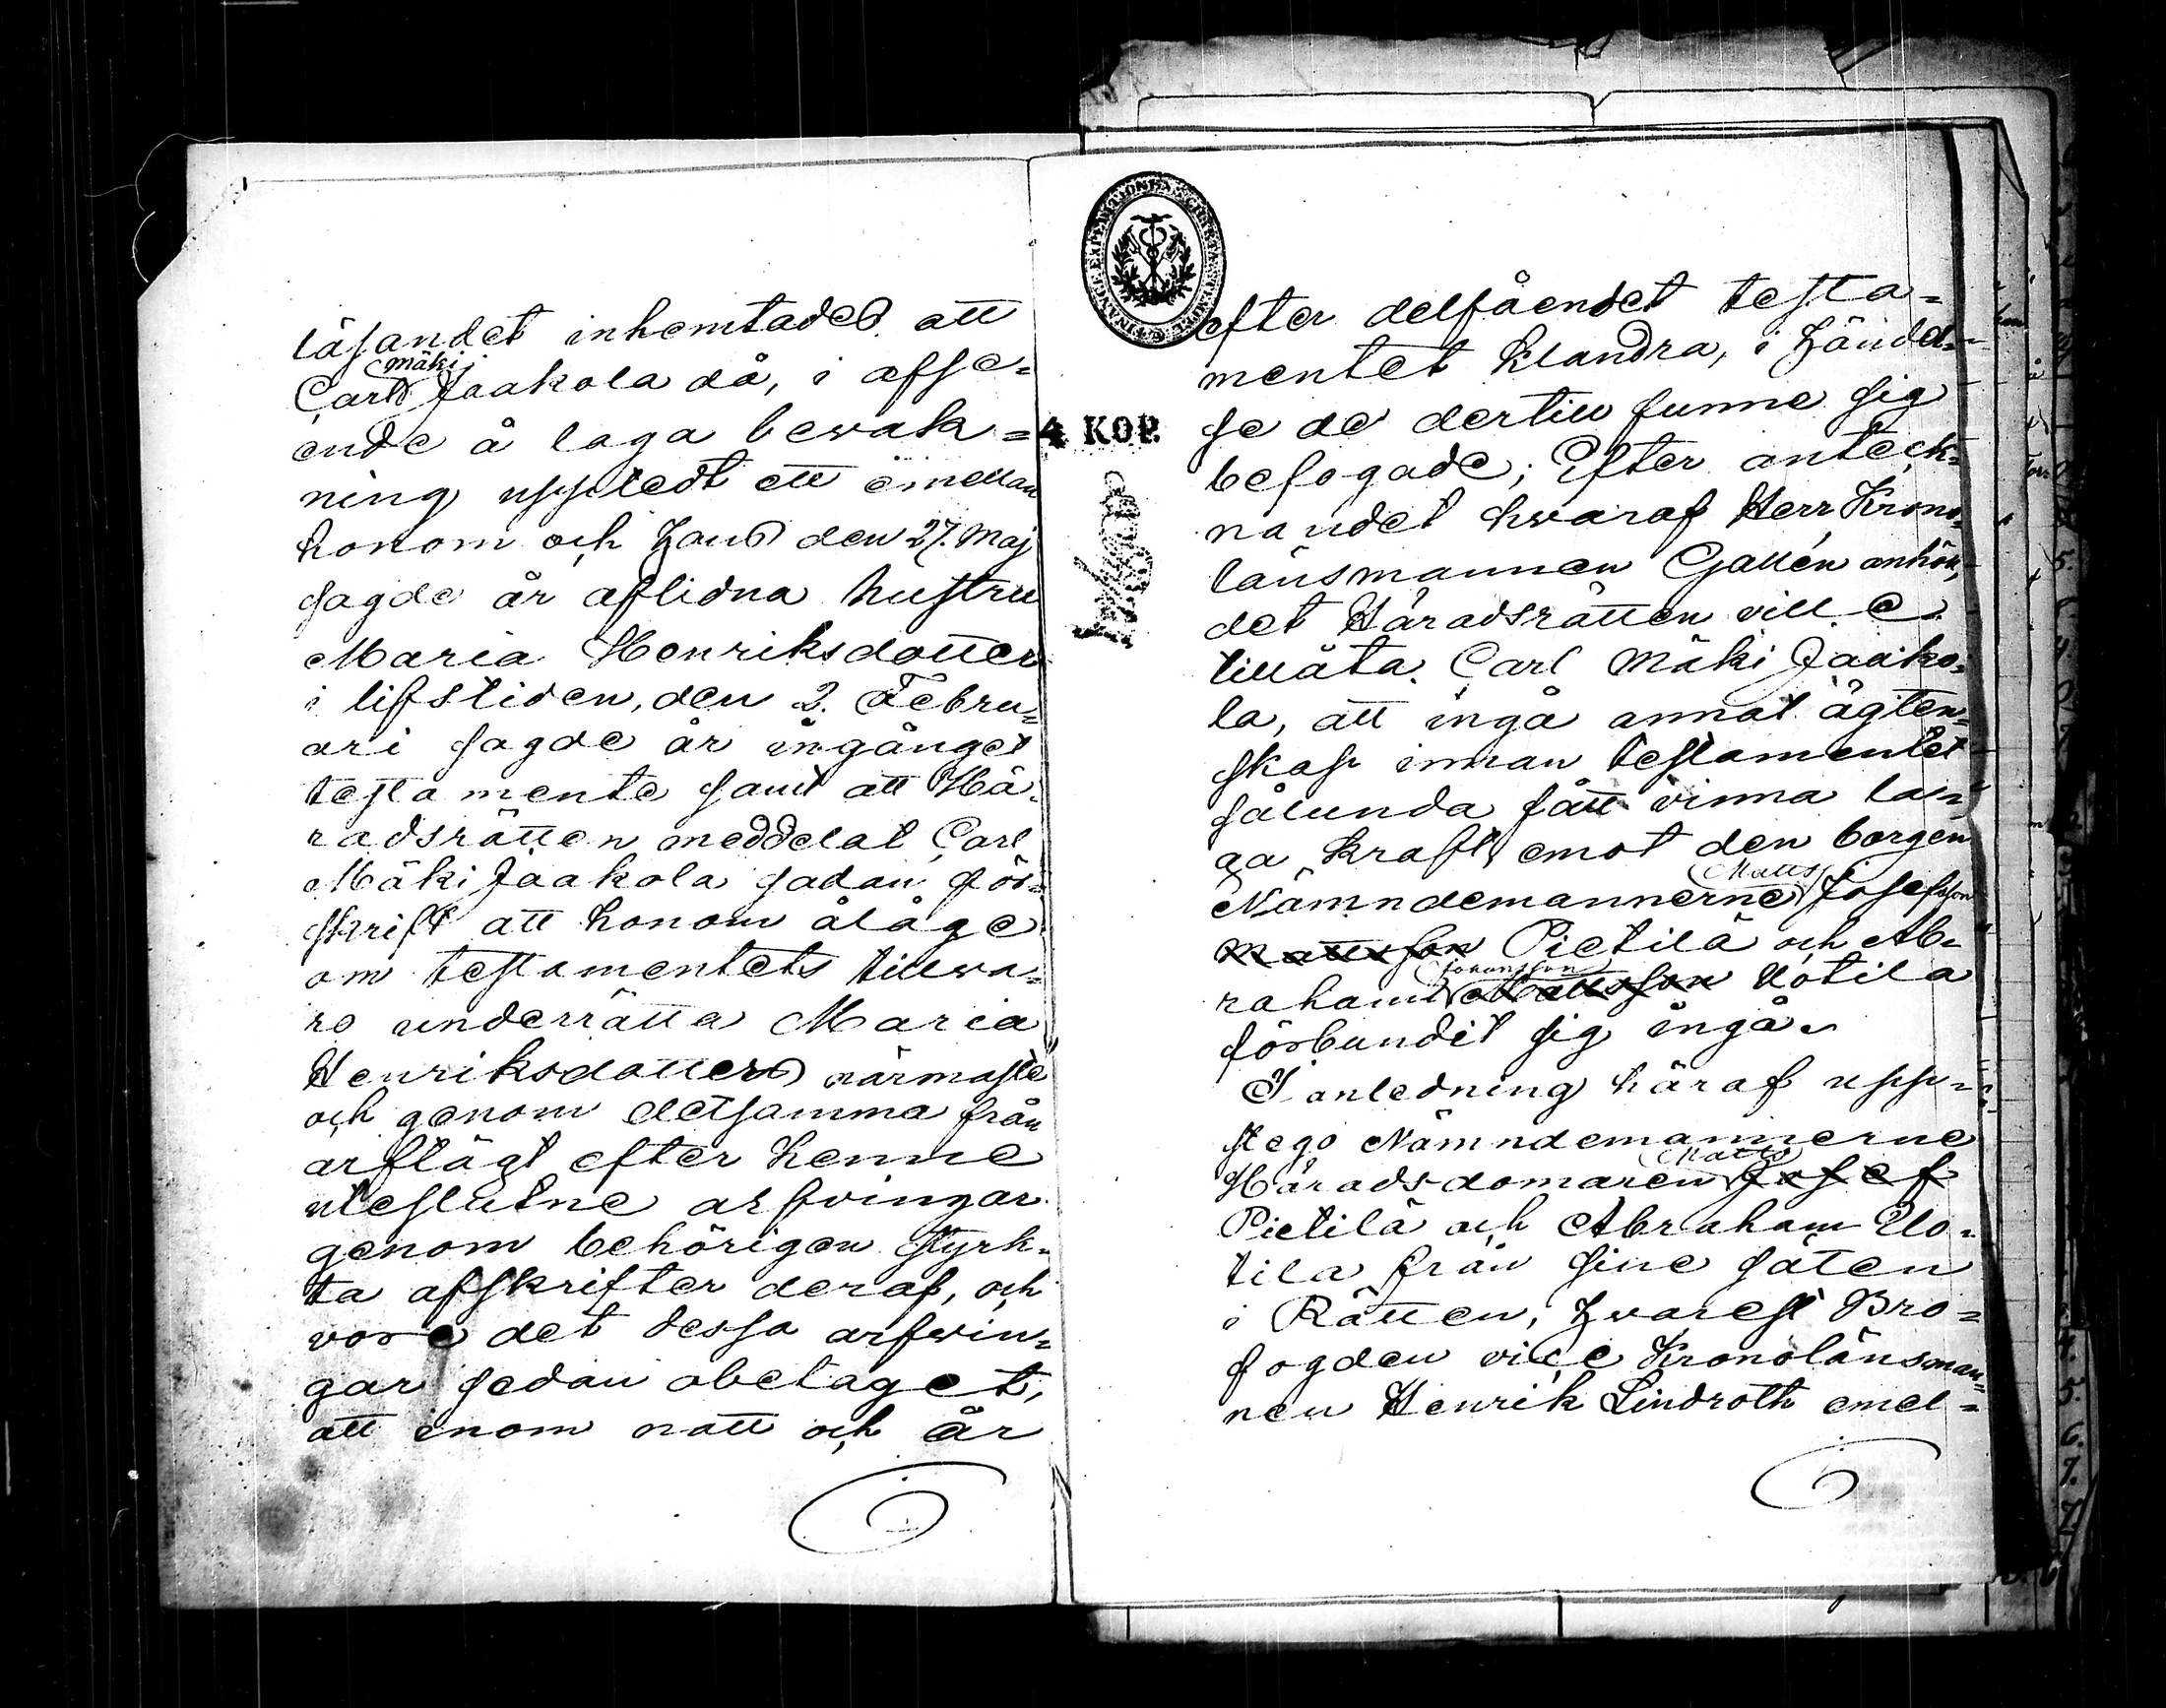 läsandet inhemtades att
Mäki
Carl Jaakola då, i afse=
ende å laga bevak=
ning uppteedt ett emellan
honom och hans den 27. Maj
sagde år aflidna hustru
Maria Henriksdotter
i lifstiden, den 2. Febru=
ari sagde år ingånget
testamente samt att Hä=
radsrätten meddelat Carl
Mäki Jaakola sådan för=
skrift att honom ålåge
om testamentets tillva=
ro underrätta Maria
Henriksdotters närmaste
och genom detsamma från
arflägt efter henne
uteslutne arfvingar
genom behörigen styrk=
ta afskrifter deraf, och
vore det dessa arfvin=
gar sedan obetaget,
att inom natt och år
efter delfåendet testa=
mentet klandra, i händel=
se de dertill funne sig
befogade; Efter anteck=
nandet hvaraf Herr Krono=
länsmannen Gallén anhön=
det Häradsrätten ville
tillåta Carl Mäki Jaako=
la, att ingå annat ägten=
skap innan testamentet
sålunda fått vinna la=
ga kraft emot den borgen
Matts
Nämndemannerne Josefsson
Mattsson Pietilä och Ab=
Johansson
raham Mattsson Uotila
förbundit sig ingå.
I anledning häraf upp=
stego Nämndemannerne
Matts
Häradsdomaren Josef
Pietilä och Abraham Uo=
tila från sine säten
i Rätten, hvarest Bro=
fogden vice Kronolänsman=
nen Henrik Lindroth emel=
4 KOP.